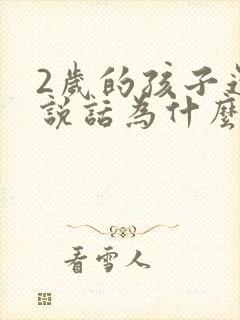 2歲的孩子
說話為什麼
看雪人